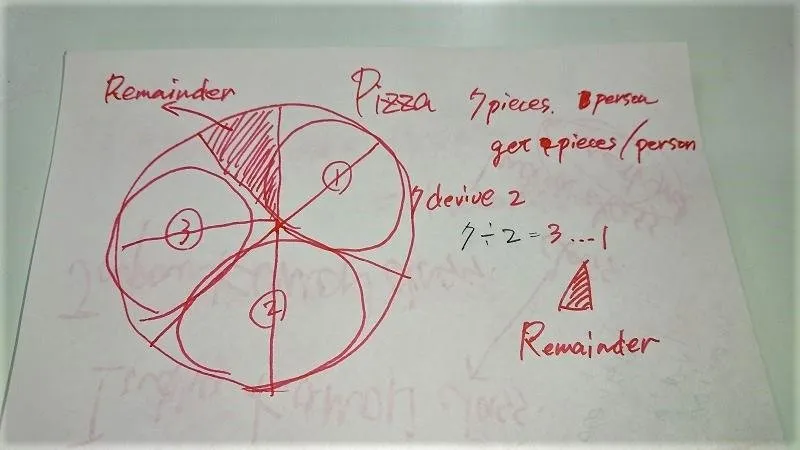 Remainder
Pizza 7 pieces. person
get pieces/person
①
7 derive 2
③
7÷2=3...1
②
Remainder